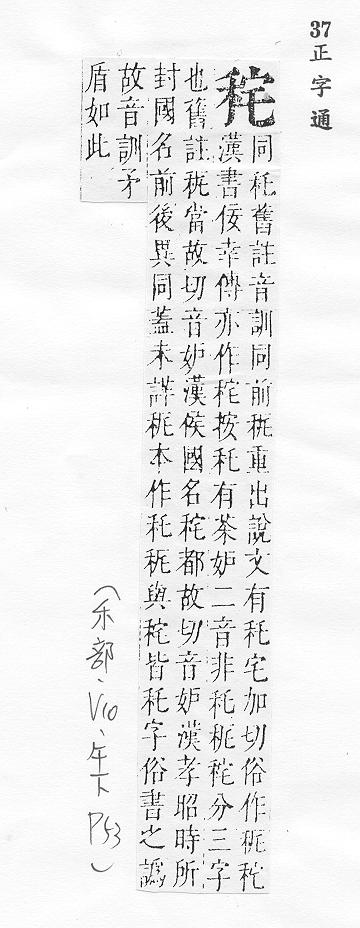 37正字通
秺
同秅舊註音訓同前重出說文有秅宅加切俗作秺
漢書佞幸傳亦作秺按秅有茶妒二音非秅秺分三字
也舊註當故切音妒漢侯國名秺都故切音妒漢孝昭時所
封國名前後異同蓋未詳本作秅與秺皆秅字俗書之譌
故音訓矛
盾如此
(禾部、V10、午下、P53)